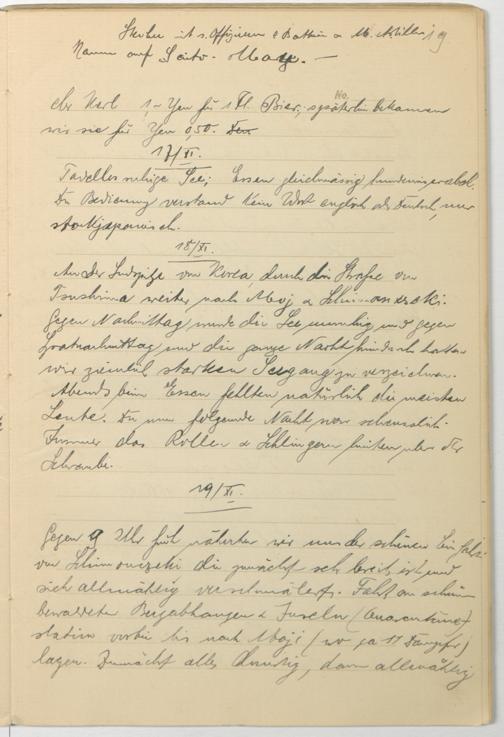 mit s. Offizieren & M. Müller 19
Namen auf Saito-Maru. —
der Kerl 1,- Yen für 1 Fl. Bier; später bekamen
No.
wir sie für Yen 0,50.
17/XI.
Tadellos ruhige See; Essen gleichmässig
Die Bedienung verstand kein Wort englisch oder Deutsch, nur
stockjapanisch.
18/XI.
An der Südspitze von Korea, durch die Strasse von
Tsushima weiter nach Moji &
Gegen Nachmittag wurde die See unruhig und gegen
Spätnachmittag und die ganze Nacht hindurch hatten
wir ziemlich starken Seegang zu verzeichnen.
Abends beim Essen fehlten natürlich die meisten
Leute. Die nun folgende Nacht war scheusslich.
Immer das Rollen & Schlingern hinten über der
Schraube.
19/XI.
Gegen 9 Uhr früh näherten wir uns der schönen Einfahrt
von die zunächst sehr breit ist und
sich allmählig verschmälert. Fahrt an schön
bewaldeten Bergabhängen & Inseln (Quarantäne-
station vorbei bis nach Moji (wo ca 17 Dampfer)
lagen. Zunächst alles dunstig, dann allmählig